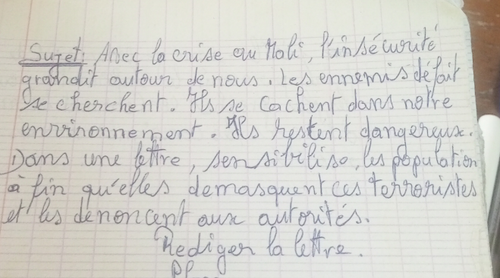 Sujet: Avec la crise au Mali, l'insécurité
grandit autour de nous. Les ennemis défait
se cherchent. Ils se cachent dans notre
environnement. Ils restent dangereux.
Dans une lettre, sensibilise, les population
à fin qu'elles demasquent ces terroristes
et les dénoncent aux autorités.
Rediger la lettre.